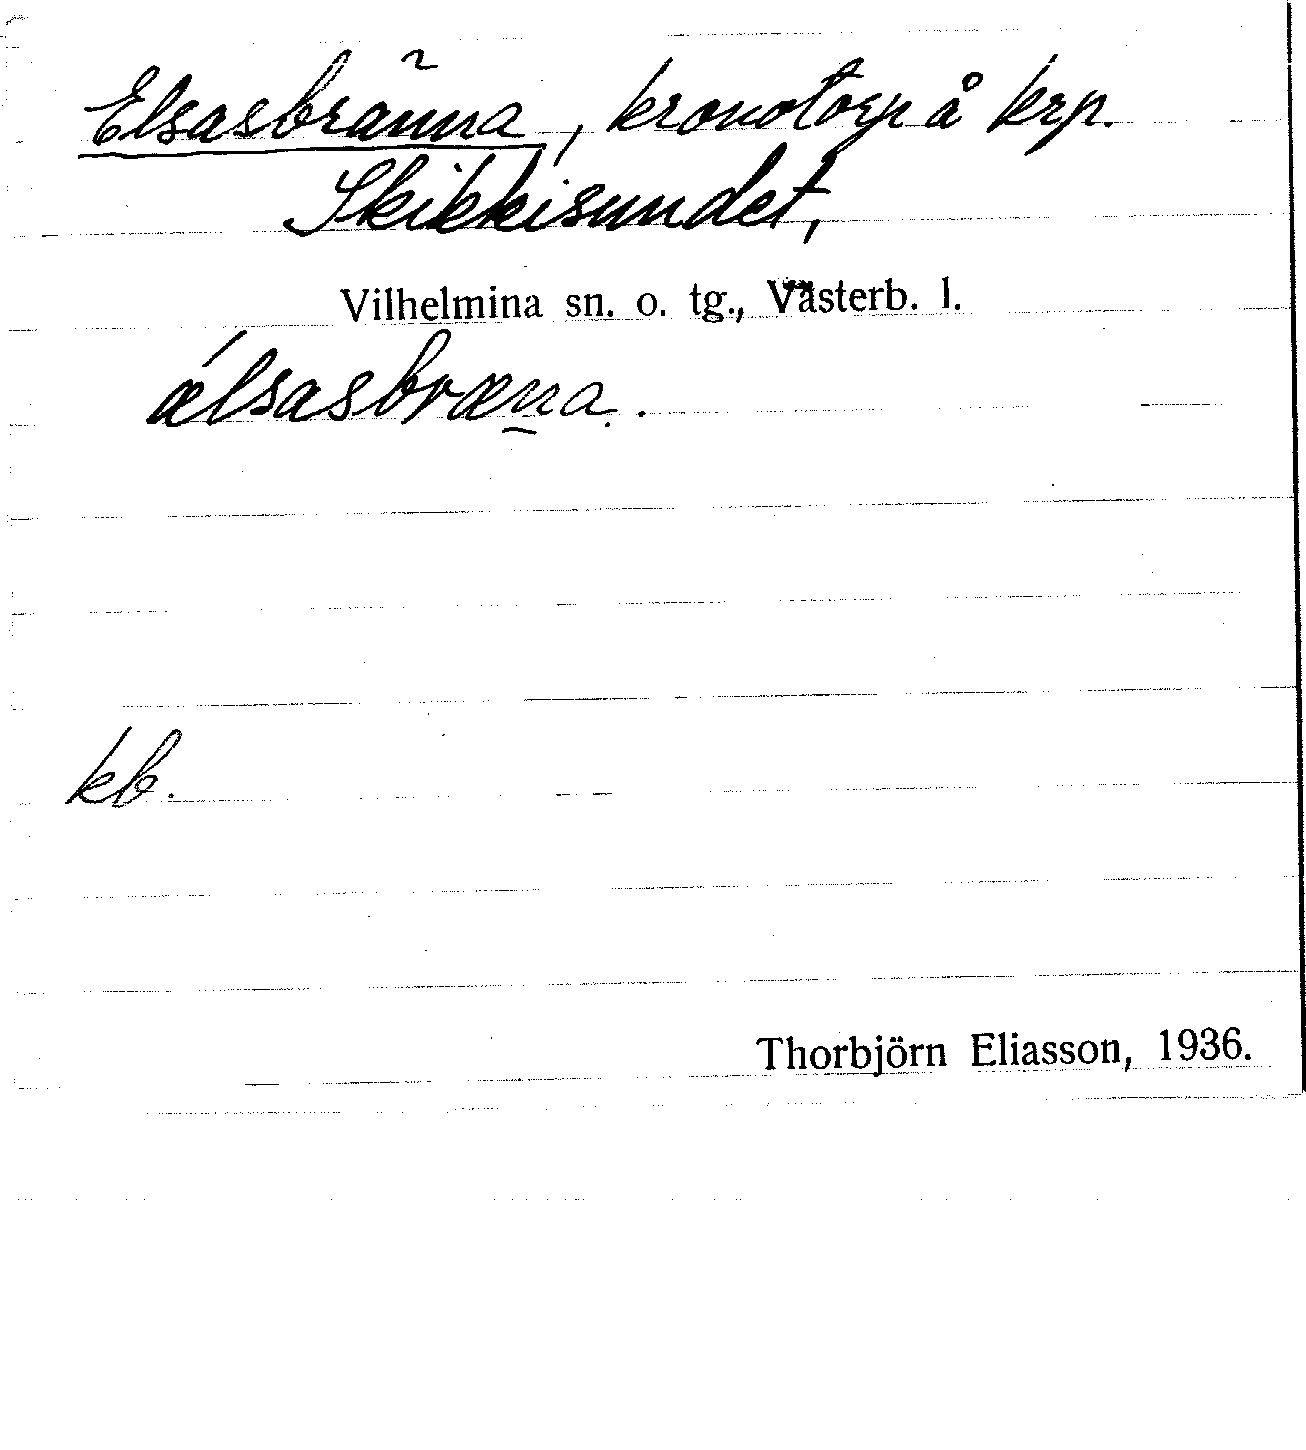 Elsasbränna, kronotorp å krp.
Skikkisundet,
Vilhelmina sn. o. tg., Västerb. l.
ǽlsasbræn̲a.
kb.
Thorbjörn Eliasson, 1936.